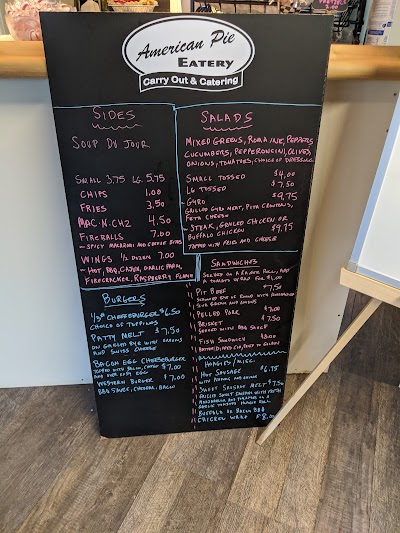 American Pie
EATERY
Carry Out & Catering
SIDES
SOUP DU JOUR
SMALL 3.75 LG. 5.75
CHIPS 1.00
FRIES 3.50
MAC-N-CHZ 4.50
FIREBALLS 7.00
- SPICY MACARONI AND CHEESE BITES
WINGS ½ DOZEN 7.00
- HOT, BBQ, CAJUN, GARLIC PARM,
FIRECRACKER, RASPBERRY FLAME
BURGERS
1/3 LB CHEESEBURGER $6.50
CHOICE OF TOPPINGS
PATTY MELT $7.50
ON GARLIC RYE WITH ONIONS
AND SWISS CHEESE
BACON EGG CHEESEBURGER
TOPPED WITH BACON, CHEESE $7.00
AND OVER EASY EGG
WESTERN BURGER $7.00
BBQ SAUCE, CHEDDAR, BACON
SALADS
MIXED GREENS, ROMAINE, PEPPERS,
CUCUMBERS, PEPPERONCINI, OLIVES
ONIONS, TOMATOES, CHOICE OF DRESSING
SMALL TOSSED $4.00
LG TOSSED $7.50
GYRO $9.75
GRILLED GYRO MEAT, PITA CROUTONS,
FETA CHEESE
- STEAK, GRILLED CHICKEN OR
BUFFALO CHICKEN $9.75
TOPPED WITH FRIES AND CHEESE
SANDWICHES
SERVED ON A KAISER ROLL, MAKE
A WRAP FOR $1.00
PIT BEEF $7.50
SHAVED EYE OF ROUND WITH HORSERADISH
AND ONIONS
PULLED PORK 7.00
BRISKET 7.50
SERVED WITH BBQ SAUCE
FISH SANDWICH $8.00
HOAGIES/MISC.
HOT SAUSAGE $6.75
WITH PEPPERS AND ONIONS
SWEET SAUSAGE MELT $7.50
GRILLED SWEET SAUSAGE WITH
MOZZARELLA AND TOMATOES ON A
GARLIC HOAGIE ROLL
BUFFALO OR BACON BBQ
CHICKEN WRAP $8.00